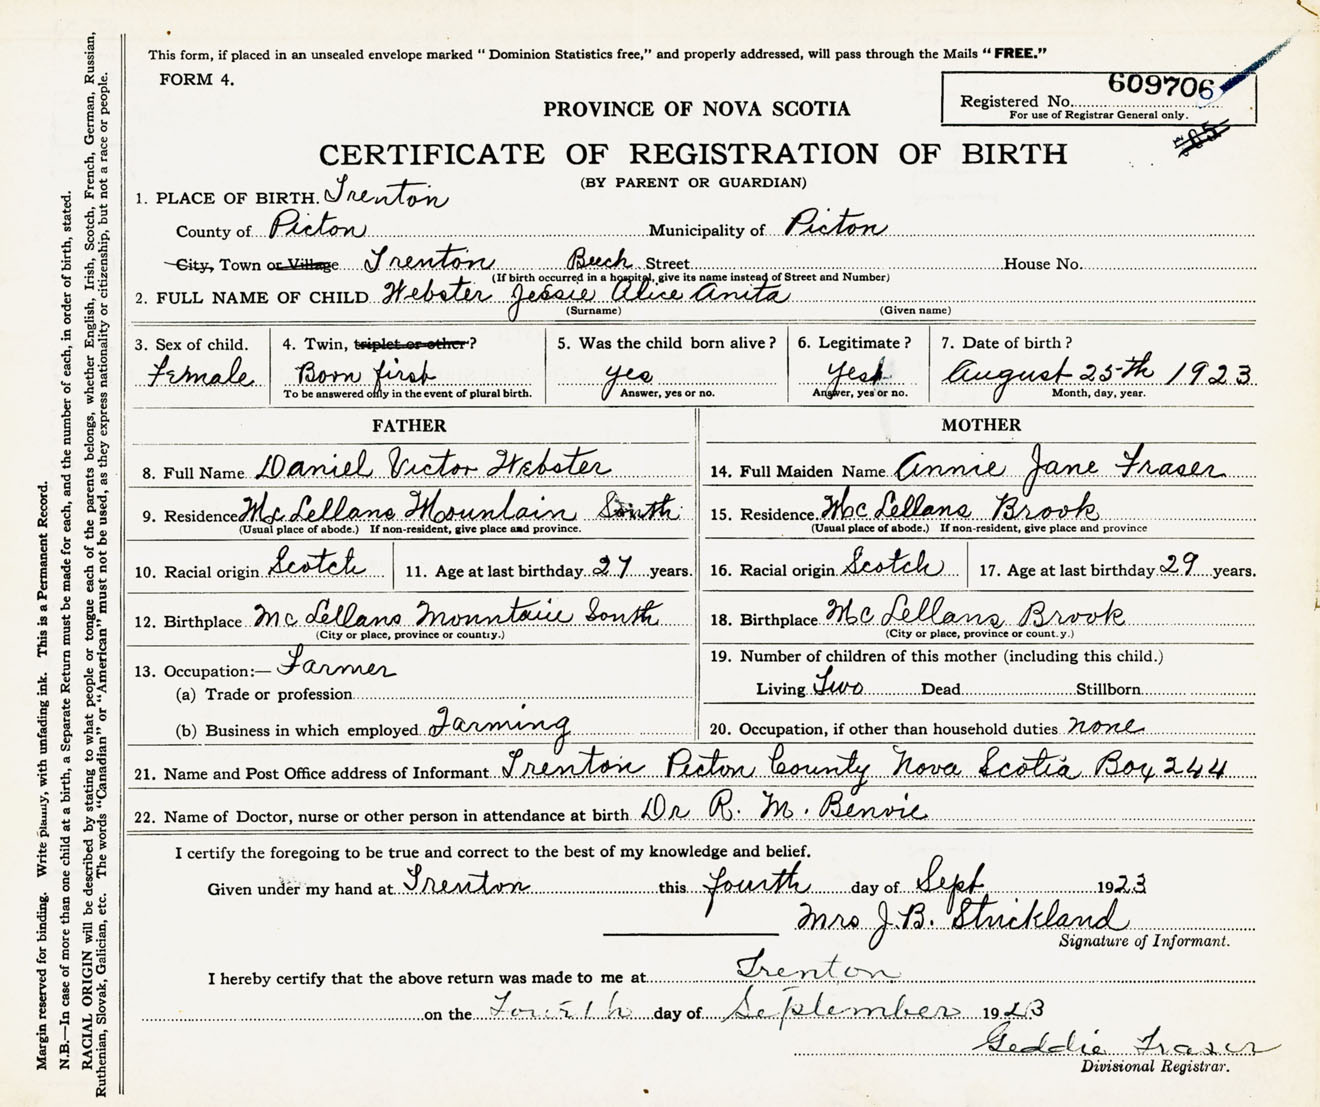 This form, if placed in an unsealed envelope marked " Dominion Statistics free," and properly addressed, will pass through the Mails " FREE."
FORM 4.
609706
Registered No.
For use of Registrar General only.
PROVINCE OF NOVA SCOTIA
CERTIFICATE OF REGISTRATION OF BIRTH
(BY PARENT OR GUARDIAN)
1. PLACE OF BIRTH. Trenton
County of Picton Municipality of Picton
City, Town or Village Trenton Beech Street House No.
(If birth occurred in a hospital, give its name instead of Street and Number)
2. FULL NAME OF CHILD Webster Jessie Alice Anita
(Surname) (Given name)
3. Sex of child. 4. Twin, triplet or other? 5. Was the child born alive? 6. Legitimate? 7. Date of birth?
Female Born first yes Yes August 25th 1923
To be answered only in the event of plural birth. Answer, yes or no. Answer, yes or no. Month, day, year.
FATHER MOTHER
8. Full Name Daniel Victor Webster 14. Full Maiden Name Annie Jane Fraser
9. Residence McLellans Mountain South 15. Residence. McLellans Brook
(Usual place of abode.) If non-resident, give place and province. (Usual place of abode.) If non-resident, give place and province
10. Racial origin Scotch 11. Age at last birthday 27 years. 16. Racial origin Scotch 17. Age at last birthday 29 years.
12. Birthplace McLellans Mountain South 18. Birthplace McLellans Brook
(City or place, province or county.) (City or place, province or county.)
13. Occupation:— Farmer 19. Number of children of this mother (including this child.)
(a) Trade or profession Living Two Dead Stillborn
(b) Business in which employed Farming 20. Occupation, if other than household duties none
21. Name and Post Office address of Informant Trenton Picton County Nova Scotia Box 244
22. Name of Doctor, nurse or other person in attendance at birth Dr R. M. Benvie
I certify the foregoing to be true and correct to the best of my knowledge and belief.
Given under my hand at Trenton this fourth day of Sept 1923
Mrs J.B. Strickland
Signature of Informant.
I hereby certify that the above return was made to me at Trenton
on the Fourth day of September 1923
Geddie Fraser
Divisional Registrar.
Margin reserved for binding. Write plainly, with unfading ink. This is a Permanent Record.
N.B.—In case of more than one child at a birth, a Separate Return must be made for each, and the number of each, in order of birth, stated.
RACIAL ORIGIN will be described by stating to what people or tongue each of the parents belongs, whether English, Irish, Scotch, French, German, Russian,
Ruthenian, Slovak, Galician, etc. The words "Canadian" or "American" must not be used, as they express nationality or citizenship, but not a race or people.